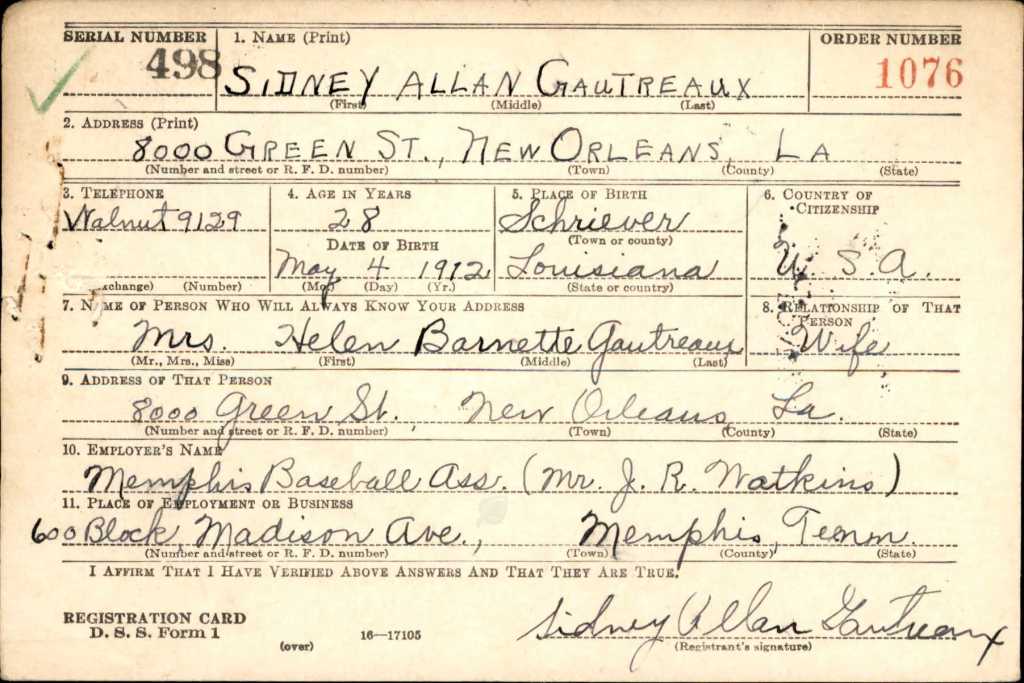 SERIAL NUMBER 1. NAME (Print) ORDER NUMBER
498 SIDNEY ALLAN GAUTREAUX 1076
(First) (Middle) (Last)
2. ADDRESS (Print)
8000 GREEN ST., NEW ORLEANS, LA
(Number and street or R. F. D. number) (Town) (County) (State)
3. TELEPHONE 4. AGE IN YEARS 5. PLACE OF BIRTH 6. COUNTRY OF
CITIZENSHIP
Walnut 9129 28 Schriever
(Town or county)
DATE OF BIRTH
May 4 1912 Louisiana U. S. A.
xchange) (Number) (Mo.) (Day) (Yr.) (State or country)
7. NAME OF PERSON WHO WILL ALWAYS KNOW YOUR ADDRESS 8. RELATIONSHIP OF THAT
PERSON
Mrs. Helen Barnette Gautreaux Wife
(Mr., Mrs., Miss) (First) (Middle) (Last)
9. ADDRESS OF THAT PERSON
8000 Green St., New Orleans, La.
(Number and street or R. F. D. number) (Town) (County) (State)
10. EMPLOYER'S NAME
Memphis Baseball Ass. (Mr. J. R. Watkins)
11. PLACE OF EMPLOYMENT OR BUSINESS
600 Block, Madison Ave., Memphis, Tenn.
(Number and street or R. F. D. number) (Town) (County) (State)
I AFFIRM THAT I HAVE VERIFIED ABOVE ANSWERS AND THAT THEY ARE TRUE.
REGISTRATION CARD
D. S. S. Form 1 16—17105 Sidney Allan Gautreaux
(over) (Registrant's signature)